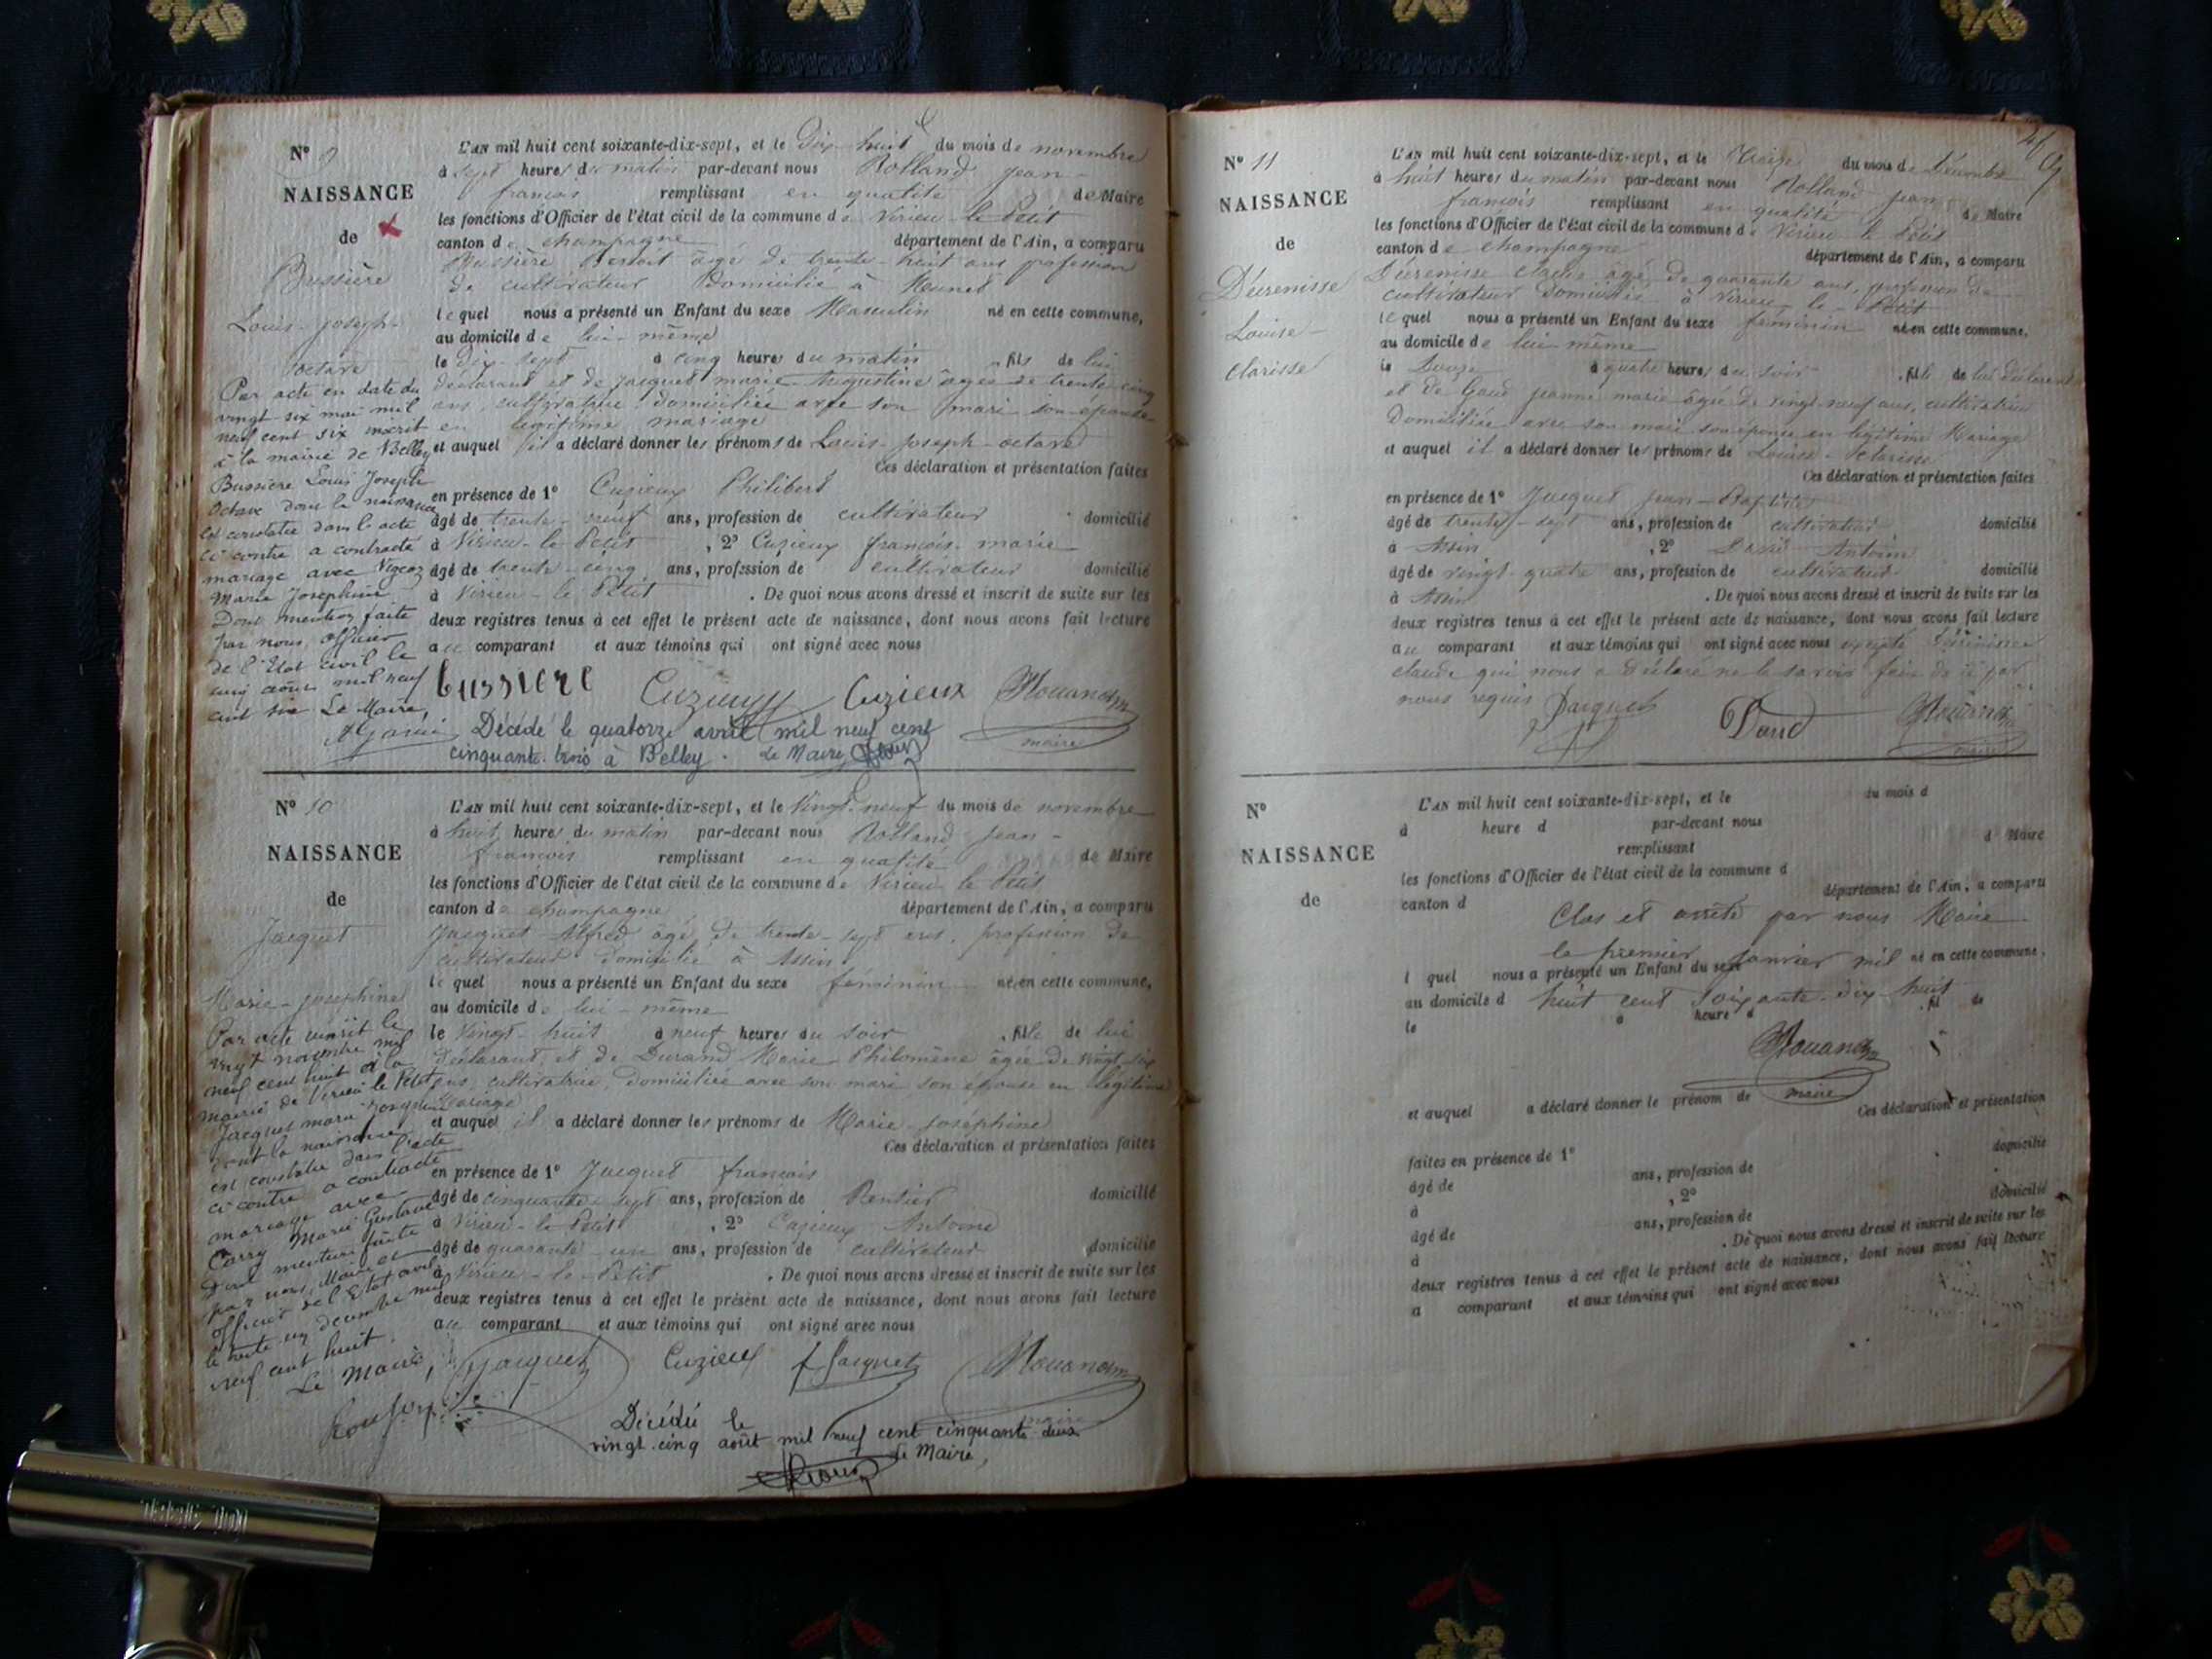 Nº 9
NAISSANCE
de
Bussière
Louis-joseph-
octave
Par acte en date du
vingt six mai mil
neuf cent six inscrit
à la mairie de Belley
Bussière Louis Joseph
Octave dont la naissance
est constatée dans l'acte
ci contre a contracté
mariage avec
Marie Josephine
Dont mention faite
par nous, officier
de l'Etat civil le
cinq août mil neuf
cent six Le Maire,
L'AN mil huit cent soixante-dix-sept, et le Dix-huit du mois de novembre
à sept heures du matin par-devant nous Rolland jean-
françois remplissant en qualité de Maire
les fonctions d'Officier de l'état civil de la commune de Virieu-le-Petit
canton de champagne département de l'Ain, a comparu
Bussière Benoit âgé de trente-huit ans profession
de cultivateur Domicilié à Munet
lequel nous a présenté un Enfant du sexe Masculin né en cette commune,
au domicile de lui-même
le dix-sept à cinq heures du matin, fils de lui
déclarant et de jacquet marie-Augustine âgée de trente-cinq
ans, cultivatrice, domiciliée avec son mari son épouse
en légitime mariage
et auquel il a déclaré donner les prénoms de Louis-joseph-octave
Ces déclaration et présentation faites
en présence de 1º Cuzieux Philibert
âgé de trente-neuf ans, profession de cultivateur domicilié
à Virieu-le-Petit, 2º Cuzieux françois-marie
âgé de trente-cinq ans, profession de cultivateur domicilié
à Virieu-le-Petit. De quoi nous avons dressé et inscrit de suite sur les
deux registres tenus à cet effet le présent acte de naissance, dont nous avons fait lecture
au comparant et aux témoins qui ont signé avec nous
bussiere Cuzieux Cuzieux
maire
Décédé le quatorze avril mil neuf cent
cinquante-trois à Belley. Le Maire
Nº 10
NAISSANCE
de
Jacquet
Marie-josephine
Par acte inscrit le
vingt novembre mil
neuf cent huit à la
mairie de Virieu le Petit
Jacquet marie Josephine
dont la naissance
est constatée dans l'acte
ci contre a contracté
mariage avec
Carry Marie Gustave
Dont mention faite
par nous, Maire et
officier de l'Etat civil
le trente un décembre mil
neuf cent huit.
Le Maire,
L'AN mil huit cent soixante-dix-sept, et le Vingt-neuf du mois de novembre
à huit heures du matin par-devant nous Rolland jean-
françois remplissant en qualité de Maire
les fonctions d'Officier de l'état civil de la commune de Virieu le Petit
canton de champagne département de l'Ain, a comparu
Jacquet Alfred âgé de trente-sept ans, profession de
cultivateur domicilié à Assin
lequel nous a présenté un Enfant du sexe féminin né en cette commune,
au domicile de lui-même
le Vingt-huit à neuf heures du soir, fille de lui
déclarant et de Durand Marie-Philomène âgée de vingt-six
ans, cultivatrice, domiciliée avec son mari son épouse en légitime
Mariage
et auquel il a déclaré donner les prénoms de Marie-Joséphine
Ces déclaration et présentation faites
en présence de 1º Jacquet françois
âgé de cinquante-sept ans, profession de Rentier domicilié
à Virieu-le-Petit, 2º Cuzieux Antoine
âgé de quarante-un ans, profession de cultivateur domicilié
à Virieu-le-Petit. De quoi nous avons dressé et inscrit de suite sur les
deux registres tenus à cet effet le présent acte de naissance, dont nous avons fait lecture
au comparant et aux témoins qui ont signé avec nous
Jacquet Cuzieux f Jacquet
maire
Décédé le
vingt-cinq août mil neuf cent cinquante deux
Le Maire,
Nº 11
NAISSANCE
de
Décrenisse
Louise-
clarisse
L'AN mil huit cent soixante-dix-sept, et le Treize du mois de Décembre
à huit heures du matin par-devant nous Rolland jean
françois remplissant en qualité de Maire
les fonctions d'Officier de l'état civil de la commune de Virieu le Petit
canton de champagne département de l'Ain, a comparu
Décrenisse claude âgé de quarante ans, profession de
cultivateur domicilié à Virieu-le-Petit
lequel nous a présenté un Enfant du sexe féminin né en cette commune,
au domicile de lui-même
le Douze à quatre heures du soir, fille de lui déclarant
et de jeanne marie âgée de vingt-neuf ans, cultivatrice
Domiciliée avec son mari son épouse en légitime Mariage
et auquel il a déclaré donner les prénoms de Louise-Clarisse
Ces déclaration et présentation faites
en présence de 1º Jacquet Jean-Baptiste
âgé de trente-sept ans, profession de cultivateur domicilié
à Assin, 2º David Antoine
âgé de vingt-quatre ans, profession de cultivateur domicilié
à Assin. De quoi nous avons dressé et inscrit de suite sur les
deux registres tenus à cet effet le présent acte de naissance, dont nous avons fait lecture
au comparant et aux témoins qui ont signé avec nous excepté Décrenisse
claude qui nous a déclaré ne le savoir faire de ce par
nous requis Jacquet David
maire
Nº
NAISSANCE
de
L'AN mil huit cent soixante-dix-sept, et le du mois d
à heure d par-devant nous
remplissant d Maire
les fonctions d'Officier de l'état civil de la commune d
canton d département de l'Ain, a comparu
Clos et arrêté par nous Maire
le premier janvier mil
l quel nous a présenté un Enfant du sexe né en cette commune,
au domicile d huit cent soixante-dix-huit
le à heure d , fil de
maire
et auquel a déclaré donner le prénom de
Ces déclaration et présentation
faites en présence de 1º
âgé de ans, profession de domicilié
à , 2º
âgé de ans, profession de domicilié
à . De quoi nous avons dressé et inscrit de suite sur les
deux registres tenus à cet effet le présent acte de naissance, dont nous avons fait lecture
a comparant et aux témoins qui ont signé avec nous